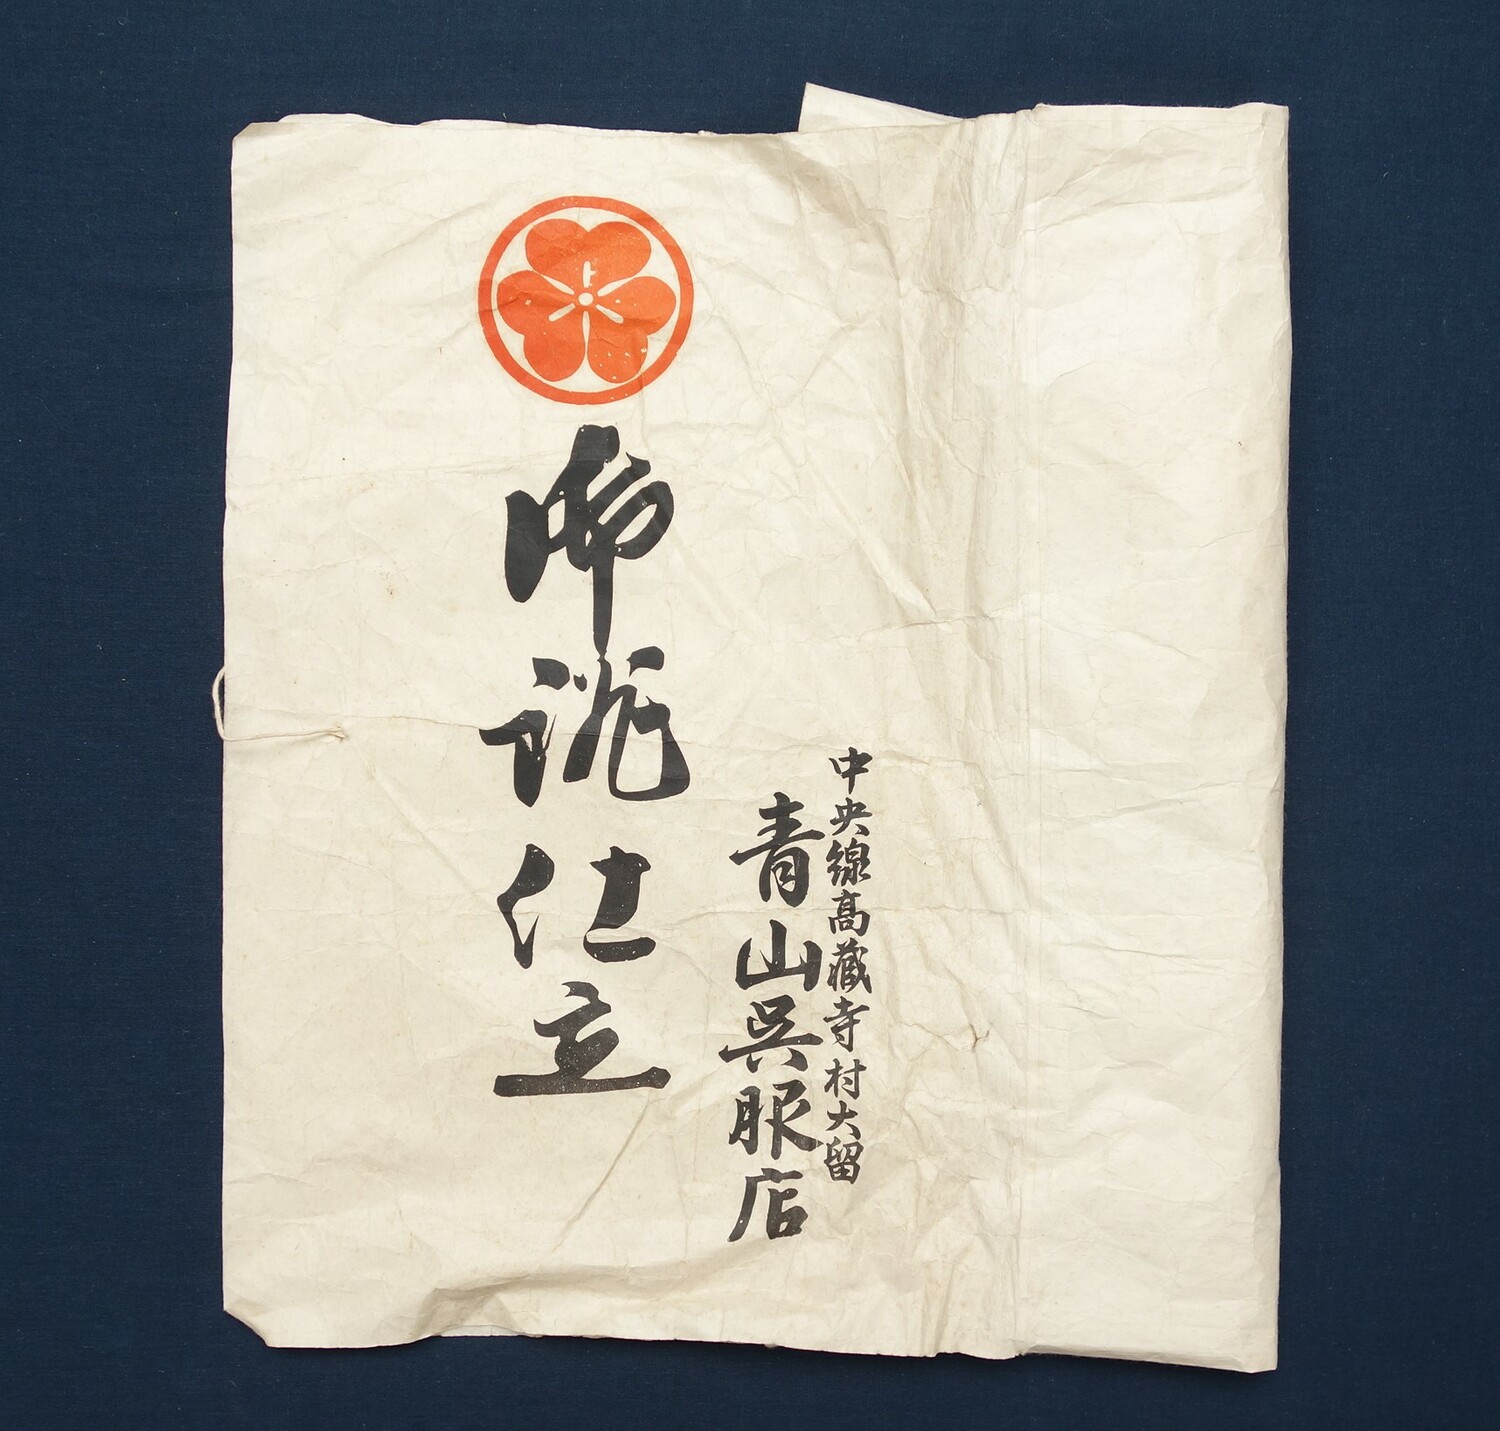 中央線高藏寺村大留
青山呉服店
御誂仕立